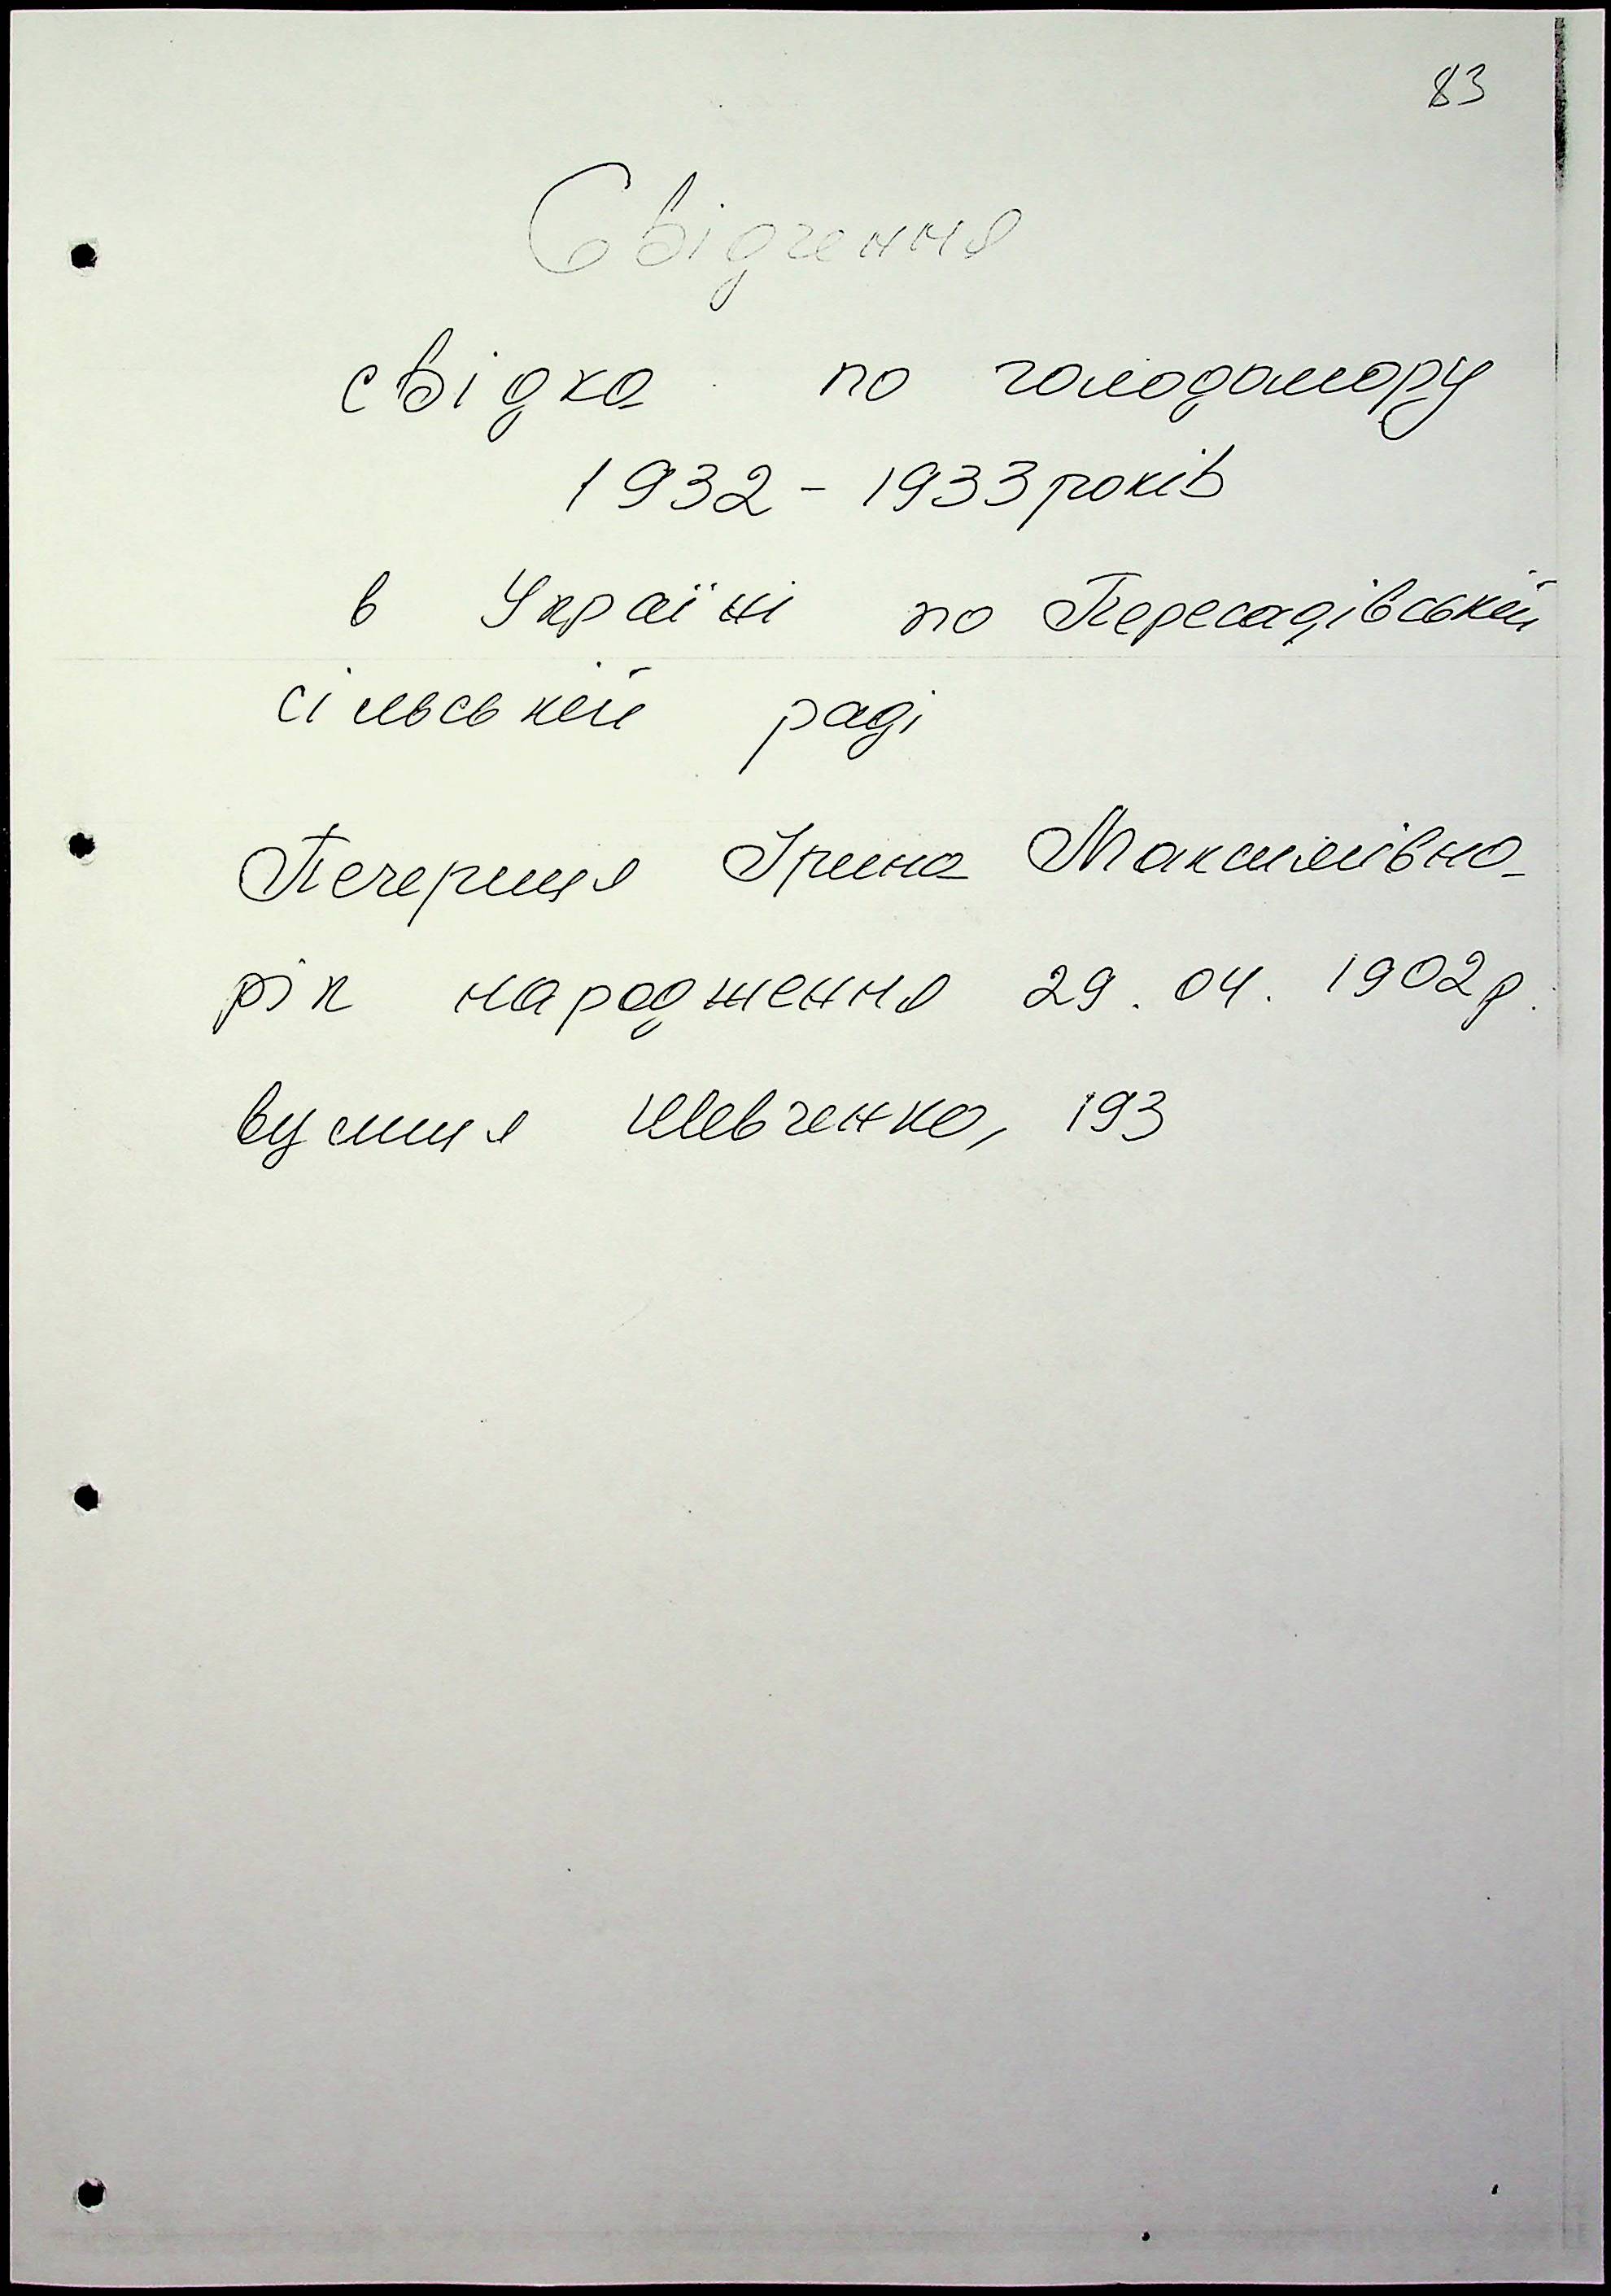 83
Свідчення
свідка по голодомору
1932 - 1933 років
в Україні по Пересадівській
сільській раді
Печериця Ірина Максимівна
рік народження 29. 04. 1902 р.
вулиця Шевченка, 193